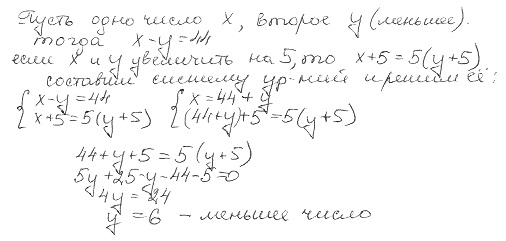 Пусть одно число x, второе y (меньшее).
тогда x-y=44
если x и y увеличить на 5, то x+5=5(y+5)
составим систему ур-ний и решим её:
{x-y=44 {x=44+y
{x+5=5(y+5) {(44+y)+5=5(y+5)
44+y+5=5(y+5)
5y+25-y-44-5=0
4y=24
y=6 - меньшее число